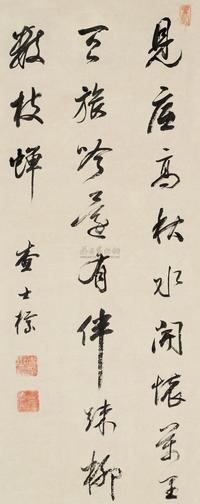 見底高秋水開懷萬里
天旅吟還有伴踈柳
數枝蟬
查士標